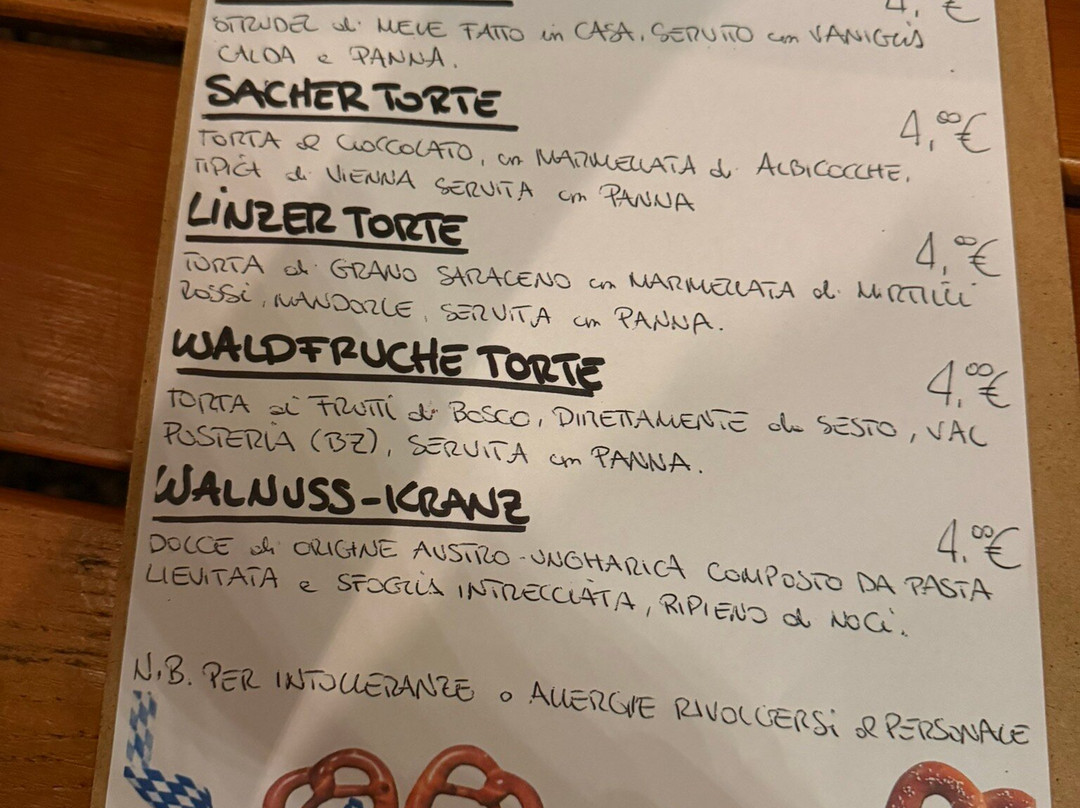 4, €
STRUDEL di MELE FATTO in CASA, SERVITO con VANIGLIA
CALDA e PANNA.
SACHER TORTE
4,00€
TORTA al CIOCCOLATO, con MARMELLATA di ALBICOCCHE,
TIPICA di VIENNA SERVITA con PANNA
LINZER TORTE
4,00€
TORTA di GRANO SARACENO con MARMELLATA di MIRTILLI
ROSSI, MANDORLE, SERVITA con PANNA.
WALDFRUCHE TORTE
4,00€
TORTA ai FRUTTI di BOSCO, DIRETTAMENTE da SESTO, VAL
PUSTERIA (BZ), SERVITA con PANNA.
WALNUSS-KRANZ
4,00€
DOLCE di ORIGINE AUSTRO-UNGHARICA COMPOSTO DA PASTA
LIEVITATA e SFOGLIA INTRECCIATA, RIPIENO di NOCI.
N.B. PER INTOLLERANZE o ALLERGIE RIVOLGERSI al PERSONALE